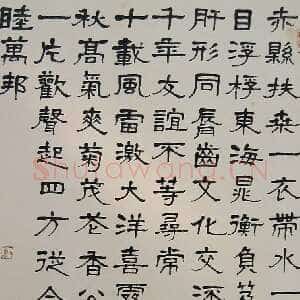 赤縣扶桑一衣帶水一
目浮桴東海晁衡負笈
肝形同脣齒文化交
千年友誼不等尋常
十載風雷激大洋喜
秋高氣爽菊茂花香公
一片歡聲起四方從今
睦萬邦
Shufawang.CN